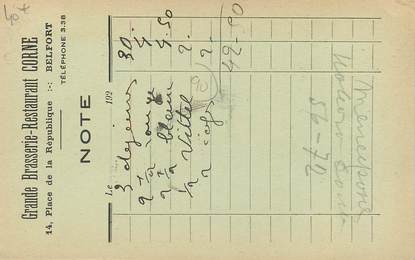 Grande Brasserie-Restaurant CORNE
14, Place de la République :-: BELFORT
TÉLÉPHONE 3.38
NOTE
Le 192
3 dejeuners 30.
2 1/2 rouge 4
2 1/2 blanc 4.50
1/2 Vittel 2.
2 cafés 2.
42-50
56-72